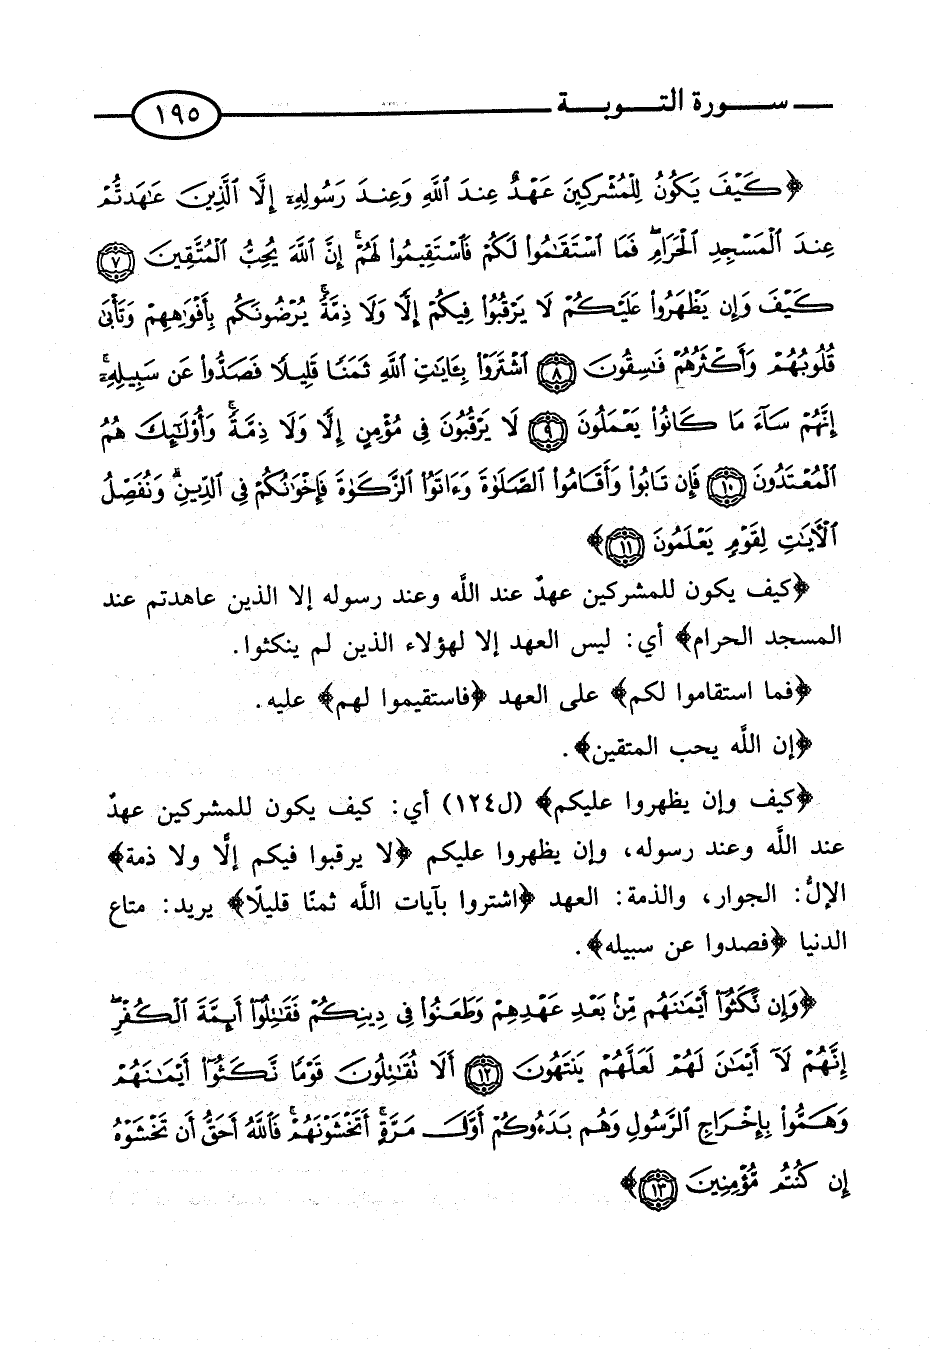 سـورة التـوبـة ١٩٥
﴿كَيْفَ يَكُونُ لِلْمُشْرِكِينَ عَهْدٌ عِندَ ٱللَّهِ وَعِندَ رَسُولِهِۦٓ إِلَّا ٱلَّذِينَ عَٰهَدتُّمْ
عِندَ ٱلْمَسْجِدِ ٱلْحَرَامِۖ فَمَا ٱسْتَقَٰمُوا۟ لَكُمْ فَٱسْتَقِيمُوا۟ لَهُمْۚ إِنَّ ٱللَّهَ يُحِبُّ ٱلْمُتَّقِينَ ٧
كَيْفَ وَإِن يَظْهَرُوا۟ عَلَيْكُمْ لَا يَرْقُبُوا۟ فِيكُمْ إِلًّا وَلَا ذِمَّةًۚ يُرْضُونَكُم بِأَفْوَٰهِهِمْ وَتَأْبَىٰ
قُلُوبُهُمْ وَأَكْثَرُهُمْ فَٰسِقُونَ ٨ ٱشْتَرَوْا۟ بِـَٔايَٰتِ ٱللَّهِ ثَمَنًا قَلِيلًا فَصَدُّوا۟ عَن سَبِيلِهِۦٓۚ
إِنَّهُمْ سَآءَ مَا كَانُوا۟ يَعْمَلُونَ ٩ لَا يَرْقُبُونَ فِى مُؤْمِنٍ إِلًّا وَلَا ذِمَّةًۚ وَأُو۟لَٰٓئِكَ هُمُ
ٱلْمُعْتَدُونَ ١٠ فَإِن تَابُوا۟ وَأَقَامُوا۟ ٱلصَّلَوٰةَ وَءَاتَوُا۟ ٱلزَّكَوٰةَ فَإِخْوَٰنُكُمْ فِى ٱلدِّينِۗ وَنُفَصِّلُ
ٱلْـَٔايَٰتِ لِقَوْمٍ يَعْلَمُونَ ١١﴾
﴿كيف يكون للمشركين عهدٌ عند اللَّه وعند رسوله إلا الذين عاهدتم عند
المسجد الحرام﴾ أي: ليس العهد إلا لهؤلاء الذين لم ينكثوا.
﴿فما استقاموا لكم﴾ على العهد ﴿فاستقيموا لهم﴾ عليه.
﴿إن اللَّه يحب المتقين﴾.
﴿كيف وإن يظهروا عليكم﴾ (ل١٢٤) أي: كيف يكون للمشركين عهدٌ
عند اللَّه وعند رسوله، وإن يظهروا عليكم ﴿لا يرقبوا فيكم إلًّا ولا ذمة﴾
الإلُّ: الجوار، والذمة: العهد ﴿اشتروا بآيات اللَّه ثمنًا قليلًا﴾ يريد: متاع
الدنيا ﴿فصدوا عن سبيله﴾.
﴿وَإِن نَّكَثُوٓا۟ أَيْمَٰنَهُم مِّنۢ بَعْدِ عَهْدِهِمْ وَطَعَنُوا۟ فِى دِينِكُمْ فَقَٰتِلُوٓا۟ أَئِمَّةَ ٱلْكُفْرِۖ
إِنَّهُمْ لَآ أَيْمَٰنَ لَهُمْ لَعَلَّهُمْ يَنتَهُونَ ١٢ أَلَا تُقَٰتِلُونَ قَوْمًا نَّكَثُوٓا۟ أَيْمَٰنَهُمْ
وَهَمُّوا۟ بِإِخْرَاجِ ٱلرَّسُولِ وَهُم بَدَءُوكُمْ أَوَّلَ مَرَّةٍۚ أَتَخْشَوْنَهُمْۚ فَٱللَّهُ أَحَقُّ أَن تَخْشَوْهُ
إِن كُنتُم مُّؤْمِنِينَ ١٣﴾